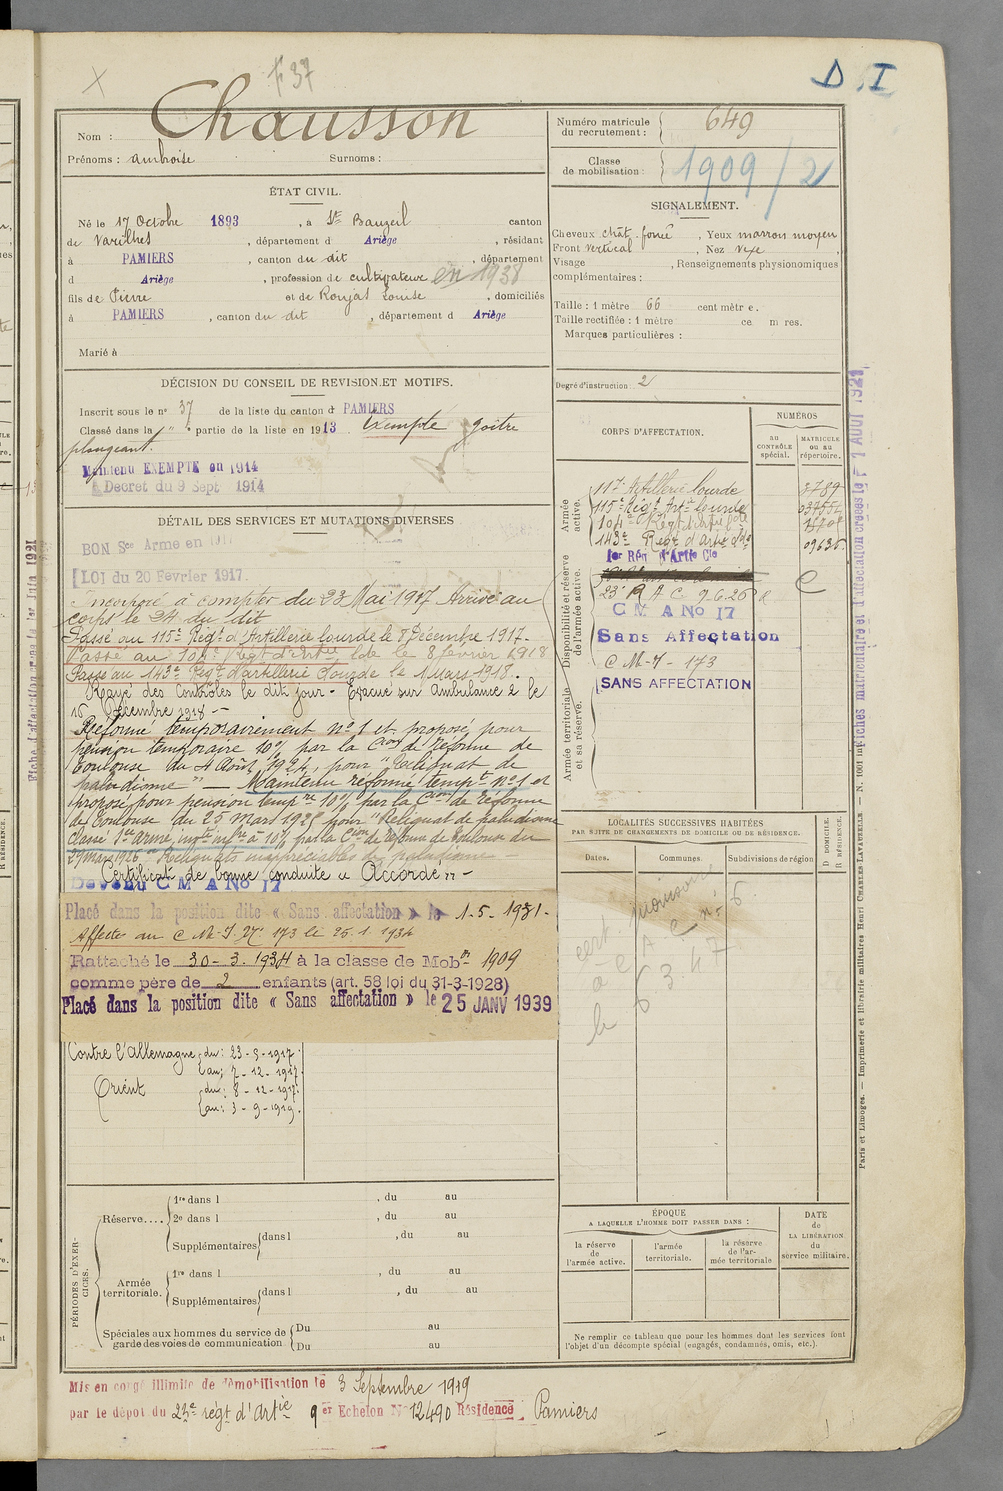 F 37
D. I
Nom : Chausson
Prénoms : Ambroise Surnoms :
Numéro matricule du recrutement : 649
Classe de mobilisation : 1909 / 2
ÉTAT CIVIL.
Né le 17 Octobre 1893, à St Bauzeil canton
de Varilhes, département d Ariège, résidant
à PAMIERS, canton du dit, département
d Ariège, profession de cultivateur en 1938
fils de Pierre et de Roujas Louise, domiciliés
à PAMIERS, canton du dit, département d Ariège
Marié à
SIGNALEMENT.
Cheveux chât. foncé, Yeux marron moyen
Front vertical, Nez vexe
Visage , Renseignements physionomiques
complémentaires :
Taille : 1 mètre 66 centimètre.
Taille rectifiée : 1 mètre ce m res.
Marques particulières :
Degré d'instruction : 2
DÉCISION DU CONSEIL DE REVISION ET MOTIFS.
Inscrit sous le no 37 de la liste du canton d PAMIERS
Classé dans la " partie de la liste en 1913. Exempté goitre
plongeant.
Maintenu EXEMPTE en 1914
Décret du 9 Sept 1914
DÉTAIL DES SERVICES ET MUTATIONS DIVERSES
BON Sce Armé en 1917
LOI du 20 Février 1917.
Incorporé à compter du 23 Mai 1917 Arrivé au
corps le 24 du dit
Passé au 115e Régt d'Artillerie lourde le 8 Décembre 1917.
Passé au 104e Régt d'Artie lde le 8 février 1918
Passé au 143e Régt d'artillerie Lourde le 1 Mars 1918.
Rayé des Contrôles le dit jour - Evacué sur ambulance 2 le
16 Décembre 1918 -
Réformé temporairement no 1 et proposé pour
pension temporaire 10% par la Cion de Réforme de
Toulouse du 4 Août 1924, pour "Reliquat de
paludisme" - Maintenu réformé tempre No 1 et
proposé pour pension tempre 10% par la Cion de Réforme
de Toulouse du 25 Mars 1925 pour "Reliquat de paludisme
Classé Sce armé, invte infre à 10% par la Cion de Réforme de Toulouse du
29 Mars 1926. Reliquats inappréciables de paludisme -
Certificat de bonne conduite "Accordé" -
Devenu C M A No 17
Placé dans la position dite « Sans affectation » le 1-5-1931.
Affecté au C.M.I. No 173 le 25.1.1934
Rattaché le 30-3.1934 à la classe de Mobon 1909
comme père de 2 enfants (art. 58 loi du 31-3-1928)
Placé dans la position dite « Sans affectation » le 25 JANV 1939
Contre l'Allemagne du: 23-5-1917
au: 7-12-1917
Orient du: 8-12-1917.
au: 3-9-1919.
CORPS D'AFFECTATION.
NUMÉROS
AU CONTRÔLE spécial.
MATRICULE ou au répertoire.
Armée active.
Disponibilité et réserve de l'armée active.
Armée territoriale et sa réserve.
117e Artillerie lourde 3789
115e Régt Art. lourde
104e Régt d'artie lde
143e Régt d'artie lde
1er Rég d'Artie Cle
23e R A C 9.6.26
C M A No 17
Sans Affectation
C M-I - 173
SANS AFFECTATION
LOCALITÉS SUCCESSIVES HABITÉES
PAR SUITE DE CHANGEMENTS DE DOMICILE OU DE RÉSIDENCE.
Dates. Communes. Subdivisions de région
D DOMICILE. R RÉSIDENCE.
cert. provisoire
A C no 6
le 6 3.47
PÉRIODES D'EXERCICES.
Réserve....
1re dans l , du au
2e dans l , du au
Supplémentaires dans l , du au
Armée territoriale.
1re dans l , du au
Supplémentaires dans l , du au
Spéciales aux hommes du service de garde des voies de communication
Du au
Du au
ÉPOQUE
A LAQUELLE L'HOMME DOIT PASSER DANS :
la réserve de l'armée active.
l'armée territoriale.
la réserve de l'armée territoriale
DATE de LA LIBÉRATION du service militaire.
Ne remplir ce tableau que pour les hommes dont les services font
l'objet d'un décompte spécial (engagés, condamnés, omis, etc.).
Mis en congé illimité de démobilisation le 3 Septembre 1919
par le dépôt du 23e régt d'artie 9er Echelon No 12490 Résidence : Pamiers
Paris et Limoges. — Imprimerie et librairie militaires Henri CHARLES-LAVAUZELLE. — N. 1661
Fiches matriculaire et d'affectation créées le 1 AOUT 1921